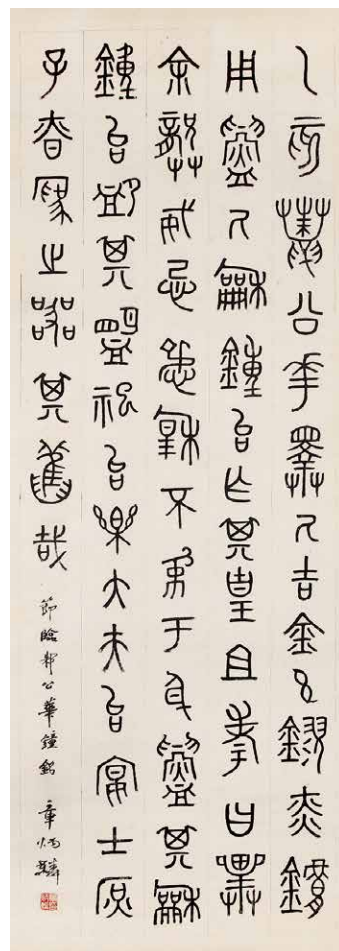 乙亥鼄公華擇氒吉金玄鏐赤鏞
用鑄氒龢鍾台乍其皇且考曰
余龏威忌穆不㒸于身鑄其龢
鍾台卹其盟祀台樂大夫台宴士庶
子昚為之其舊哉
節臨邾公華鐘銘 章炳麟